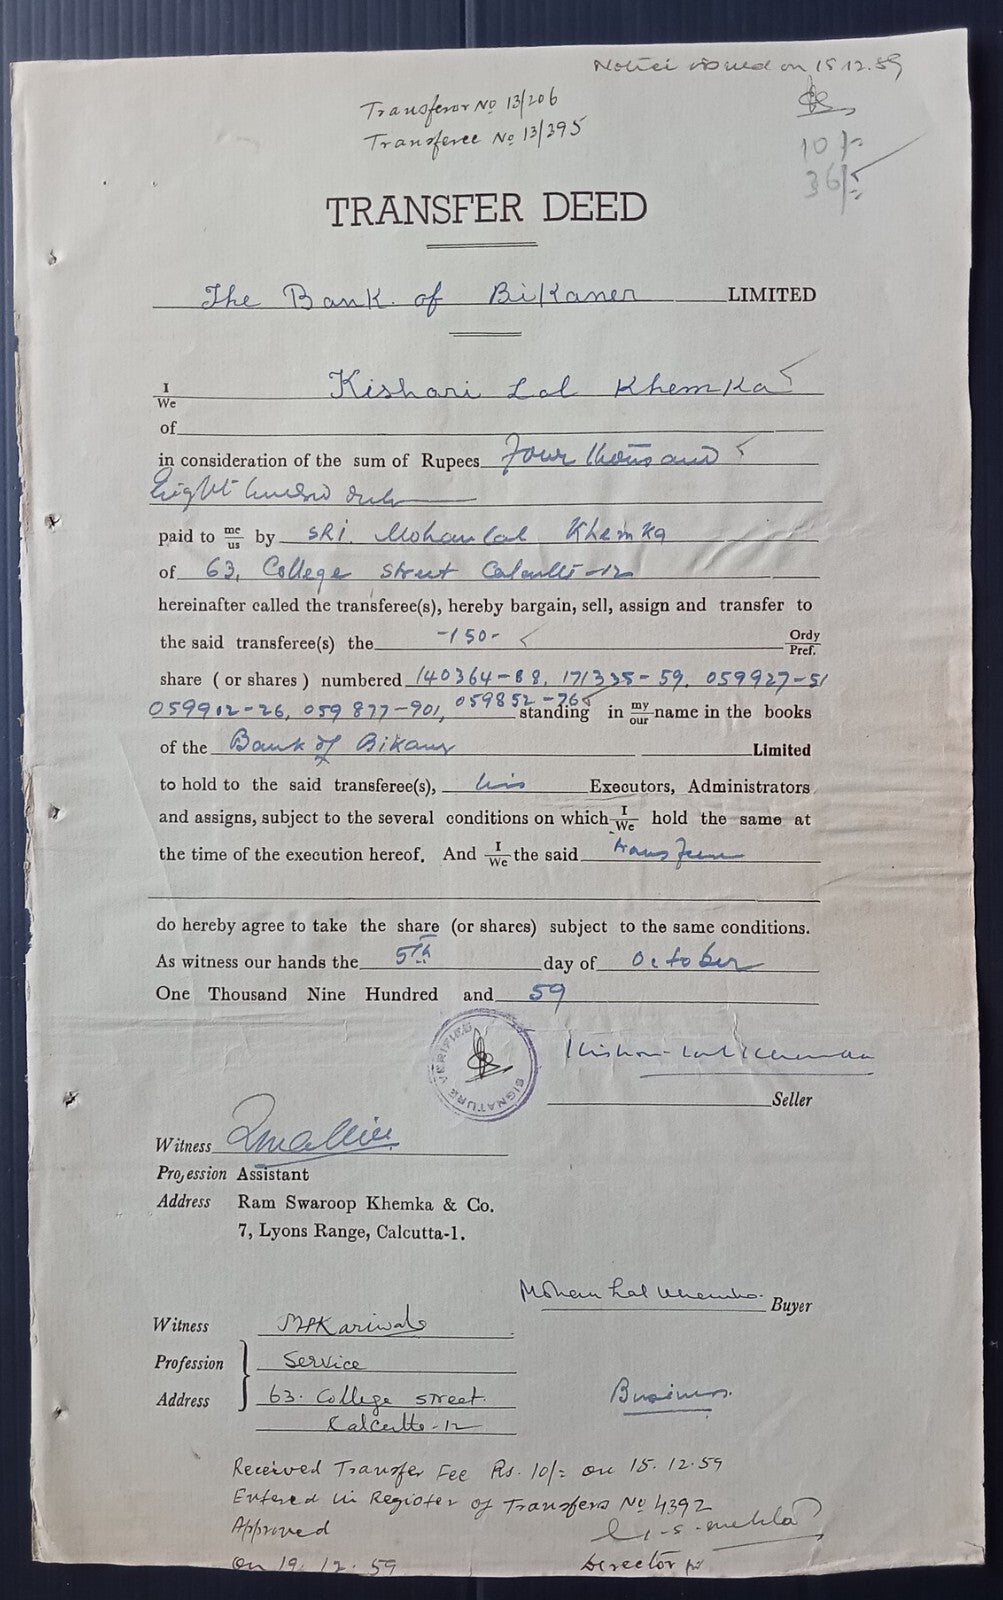 Notice issued on 15.12.59
Transferor No 13/206
Transferee No 13/395
10/=
36/=
TRANSFER DEED
The Bank of Bikaner LIMITED
I/We Kishori Lal Khemka
of
in consideration of the sum of Rupees Four thousand
Eight hundred only
paid to me/us by SRI. Mohan Lal Khemka
of 63, College Street Calcutta-12
hereinafter called the transferee(s), hereby bargain, sell, assign and transfer to
the said transferee(s) the -150- Ordy/Pref.
share (or shares) numbered 140364-88, 171335-59, 059927-51
059902-26, 059877-901, 059852-76 standing in my/our name in the books
of the Bank of Bikaner Limited
to hold to the said transferee(s), his Executors, Administrators
and assigns, subject to the several conditions on which I/We hold the same at
the time of the execution hereof. And I/We the said transferee
do hereby agree to take the share (or shares) subject to the same conditions.
As witness our hands the 5th day of October
One Thousand Nine Hundred and 59
SIGNATURE VERIFIED
Kishori Lal Khemka
Seller
Witness
Profession Assistant
Address Ram Swaroop Khemka & Co.
7, Lyons Range, Calcutta-1.
Mohan Lal Khemka
Buyer
Witness MPKariwala
Profession Service
Address 63. College Street.
Calcutta-12
Business.
Received Transfer Fee Rs. 10/= on 15.12.59
Entered in Register of Transfers No 4392
Approved
on 19.12.59
Director